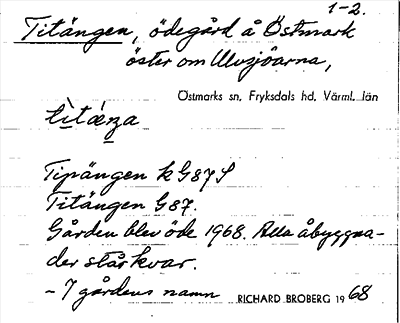 1-2.
Titängen, ödegård å Östmark
öster om Ulvsjöarna,
Östmarks sn, Fryksdals hd, Värml. län
Tipängen k G87S
Titängen G87.
Gården blev öde 1968. Alla åbyggna-
der står kvar.
- I gårdens namn
RICHARD BROBERG 1968